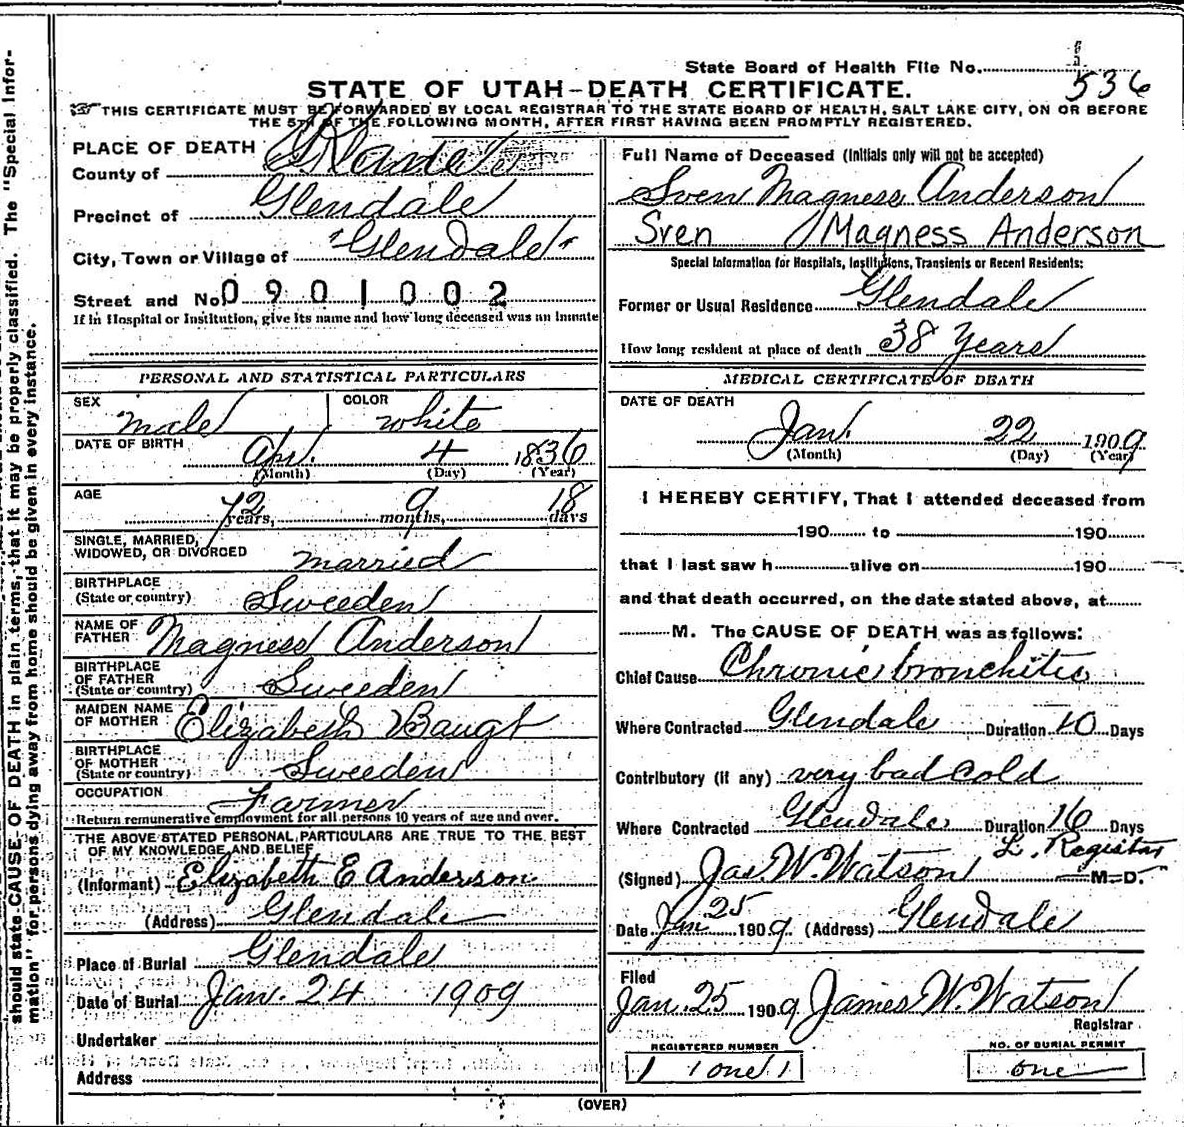 State Board of Health File No.
536
STATE OF UTAH-DEATH CERTIFICATE.
THIS CERTIFICATE MUST BE FORWARDED BY LOCAL REGISTRAR TO THE STATE BOARD OF HEALTH, SALT LAKE CITY, ON OR BEFORE
THE 5TH OF THE FOLLOWING MONTH, AFTER FIRST HAVING BEEN PROMPTLY REGISTERED.
should state CAUSE OF DEATH in plain terms, that it may be properly classified. The "Special Infor-
mation" for persons dying away from home should be given in every instance.
PLACE OF DEATH
County of Kane
Precinct of Glendale
City, Town or Village of "Glendale"
Street and No. 0901002
If in Hospital or Institution, give its name and how long deceased was an inmate
PERSONAL AND STATISTICAL PARTICULARS
SEX male COLOR white
DATE OF BIRTH Apr. 4 1836
(Month) (Day) (Year)
AGE 72 years, 9 months, 18 days
SINGLE, MARRIED,
WIDOWED, OR DIVORCED married
BIRTHPLACE
(State or country) Sweeden
NAME OF
FATHER Magness Anderson
BIRTHPLACE
OF FATHER
(State or country) Sweeden
MAIDEN NAME
OF MOTHER Elizabeth Baugt
BIRTHPLACE
OF MOTHER
(State or country) Sweeden
OCCUPATION Farmer
Return remunerative employment for all persons 10 years of age and over.
THE ABOVE STATED PERSONAL PARTICULARS ARE TRUE TO THE BEST
OF MY KNOWLEDGE AND BELIEF
(Informant) Elizabeth E Anderson
(Address) Glendale
Place of Burial Glendale
Date of Burial Jan. 24 1909
Undertaker
Address
Full Name of Deceased (Initials only will not be accepted)
Sven Magness Anderson
Sven Magness Anderson
Special Information for Hospitals, Institutions, Transients or Recent Residents:
Former or Usual Residence Glendale
How long resident at place of death 38 Years
MEDICAL CERTIFICATE OF DEATH
DATE OF DEATH
Jan. 22 1909
(Month) (Day) (Year)
I HEREBY CERTIFY, That I attended deceased from
190 to 190
that I last saw h alive on 190
and that death occurred, on the date stated above, at
M. The CAUSE OF DEATH was as follows:
Chief Cause Chronic bronchitis
Where Contracted Glendale Duration 10 Days
Contributory (if any) very bad cold
Where Contracted Glendale Duration 16 Days
L. Registar
(Signed) Jas. W. Watson M. D.
Date Jan 25 1909. (Address) Glendale
Filed
Jan. 25 1909 James W. Watson
Registrar
REGISTERED NUMBER NO. OF BURIAL PERMIT
1 one 1 one
(OVER)